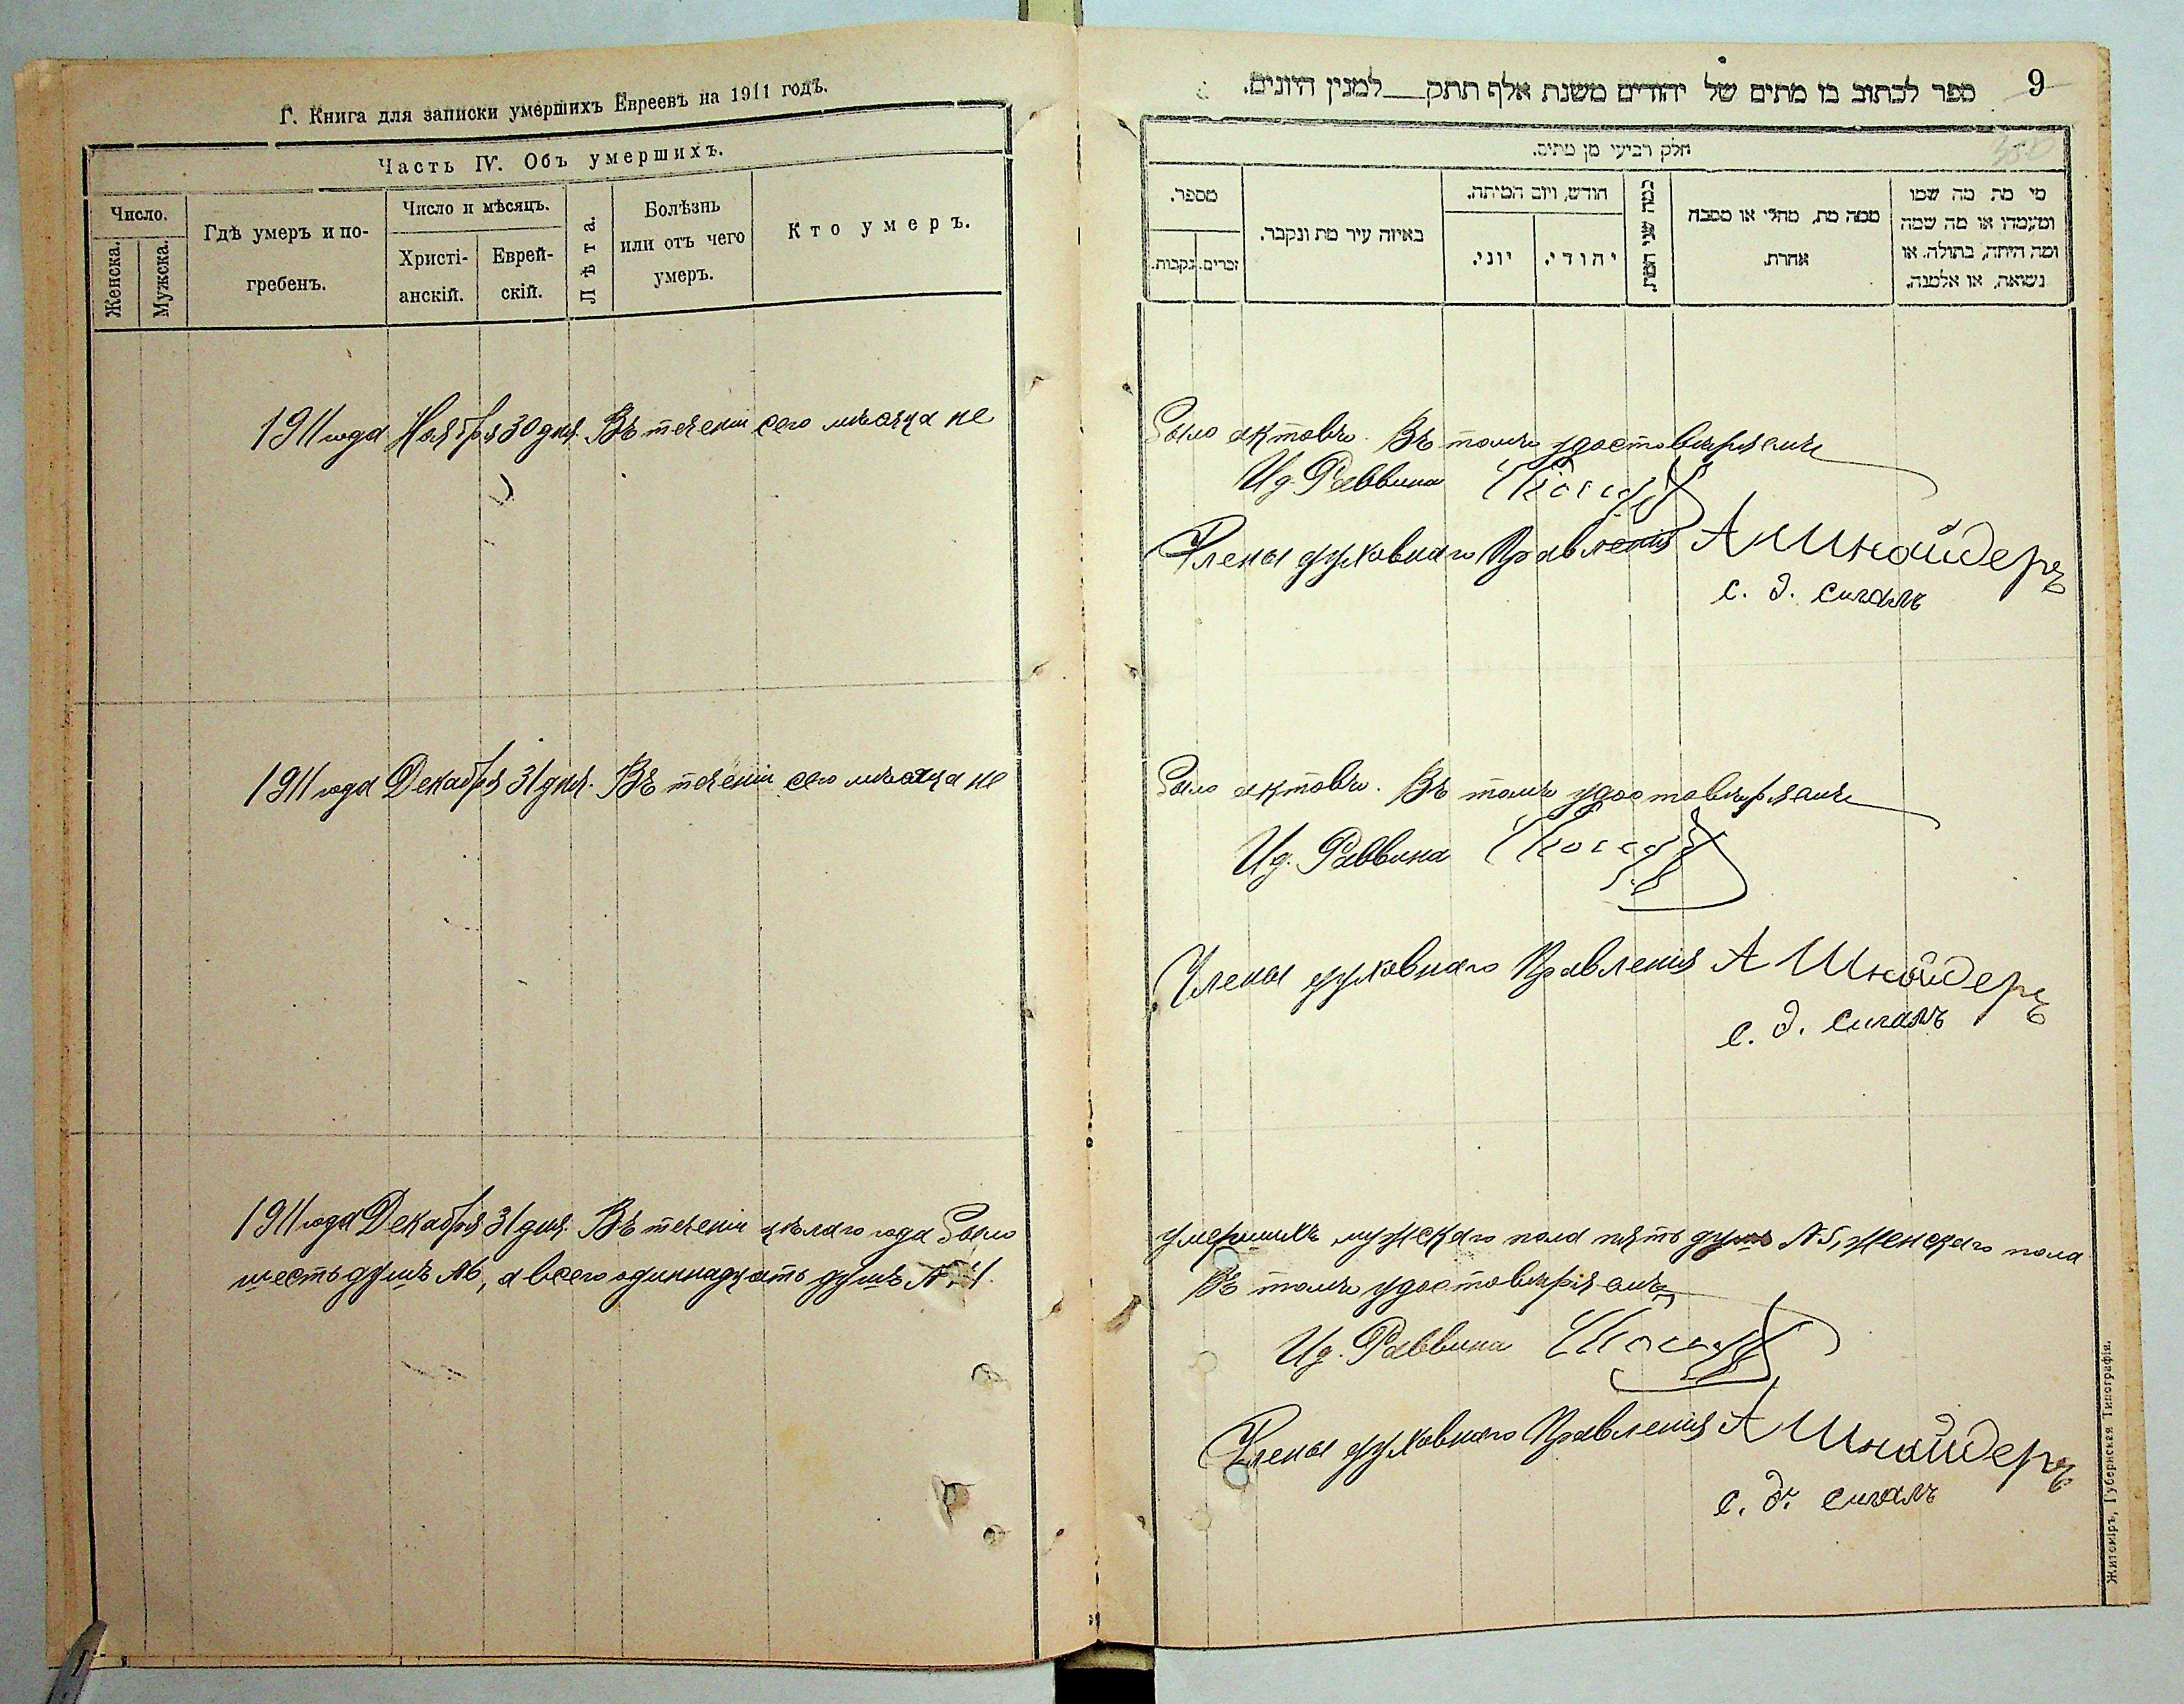 Г. Книга для записки умершихъ Евреевъ на 1911 годъ.
Часть IV. Объ умершихъ.
Число.
Женска.
Мужска.
Гдѣ умеръ и по-
гребенъ.
Число и мѣсяцъ.
Христі-
анскій.
Еврей-
скій.
Лѣта.
Болѣзнь
или отъ чего
умеръ.
Кто умеръ.
1911 года Ноября 30 дня. Въ теченіи сего мѣсяца не
1911 года Декабря 31 дня. Въ теченіи сего мѣсяца не
1911 года Декабря 31 дня. Въ теченіи цѣлаго года было
шесть душъ №6, а всего одиннадцать душъ № 11.
ספר לכתוב בו מתים של יהודים משנת אלף תתק למנין היונים.
9
חלק רביעי מן מתים.
מספר.
זכרים.
נקבות.
באיזה עיר מת ונקבר.
חודש, ויום המיתה.
יוני.
יהודי.
כמה שני המת.
ממה מת, מחלי או מסבה
אחרת.
מי מת מה שמו
ומעמדו או מה שמה
ומה היתה, בתולה. או
נשואה, או אלמנה.
было актовъ. Въ томъ удостовѣряемъ
И д. Раввина
Члены духовнаго Правленія А Шнайдеръ
с. д. сигалъ
было актовъ. Въ томъ удостовѣряемъ
И д. Раввина
Члены духовнаго Правленія А Шнайдеръ
с. д. сигалъ
умершихъ мужскаго пола пять душъ №5, женскаго пола
Въ томъ удостовѣряемъ
И д. Раввина
Члены духовнаго Правленія А Шнайдеръ
с. д. сигалъ
Житоміръ, Губернская Типографія.